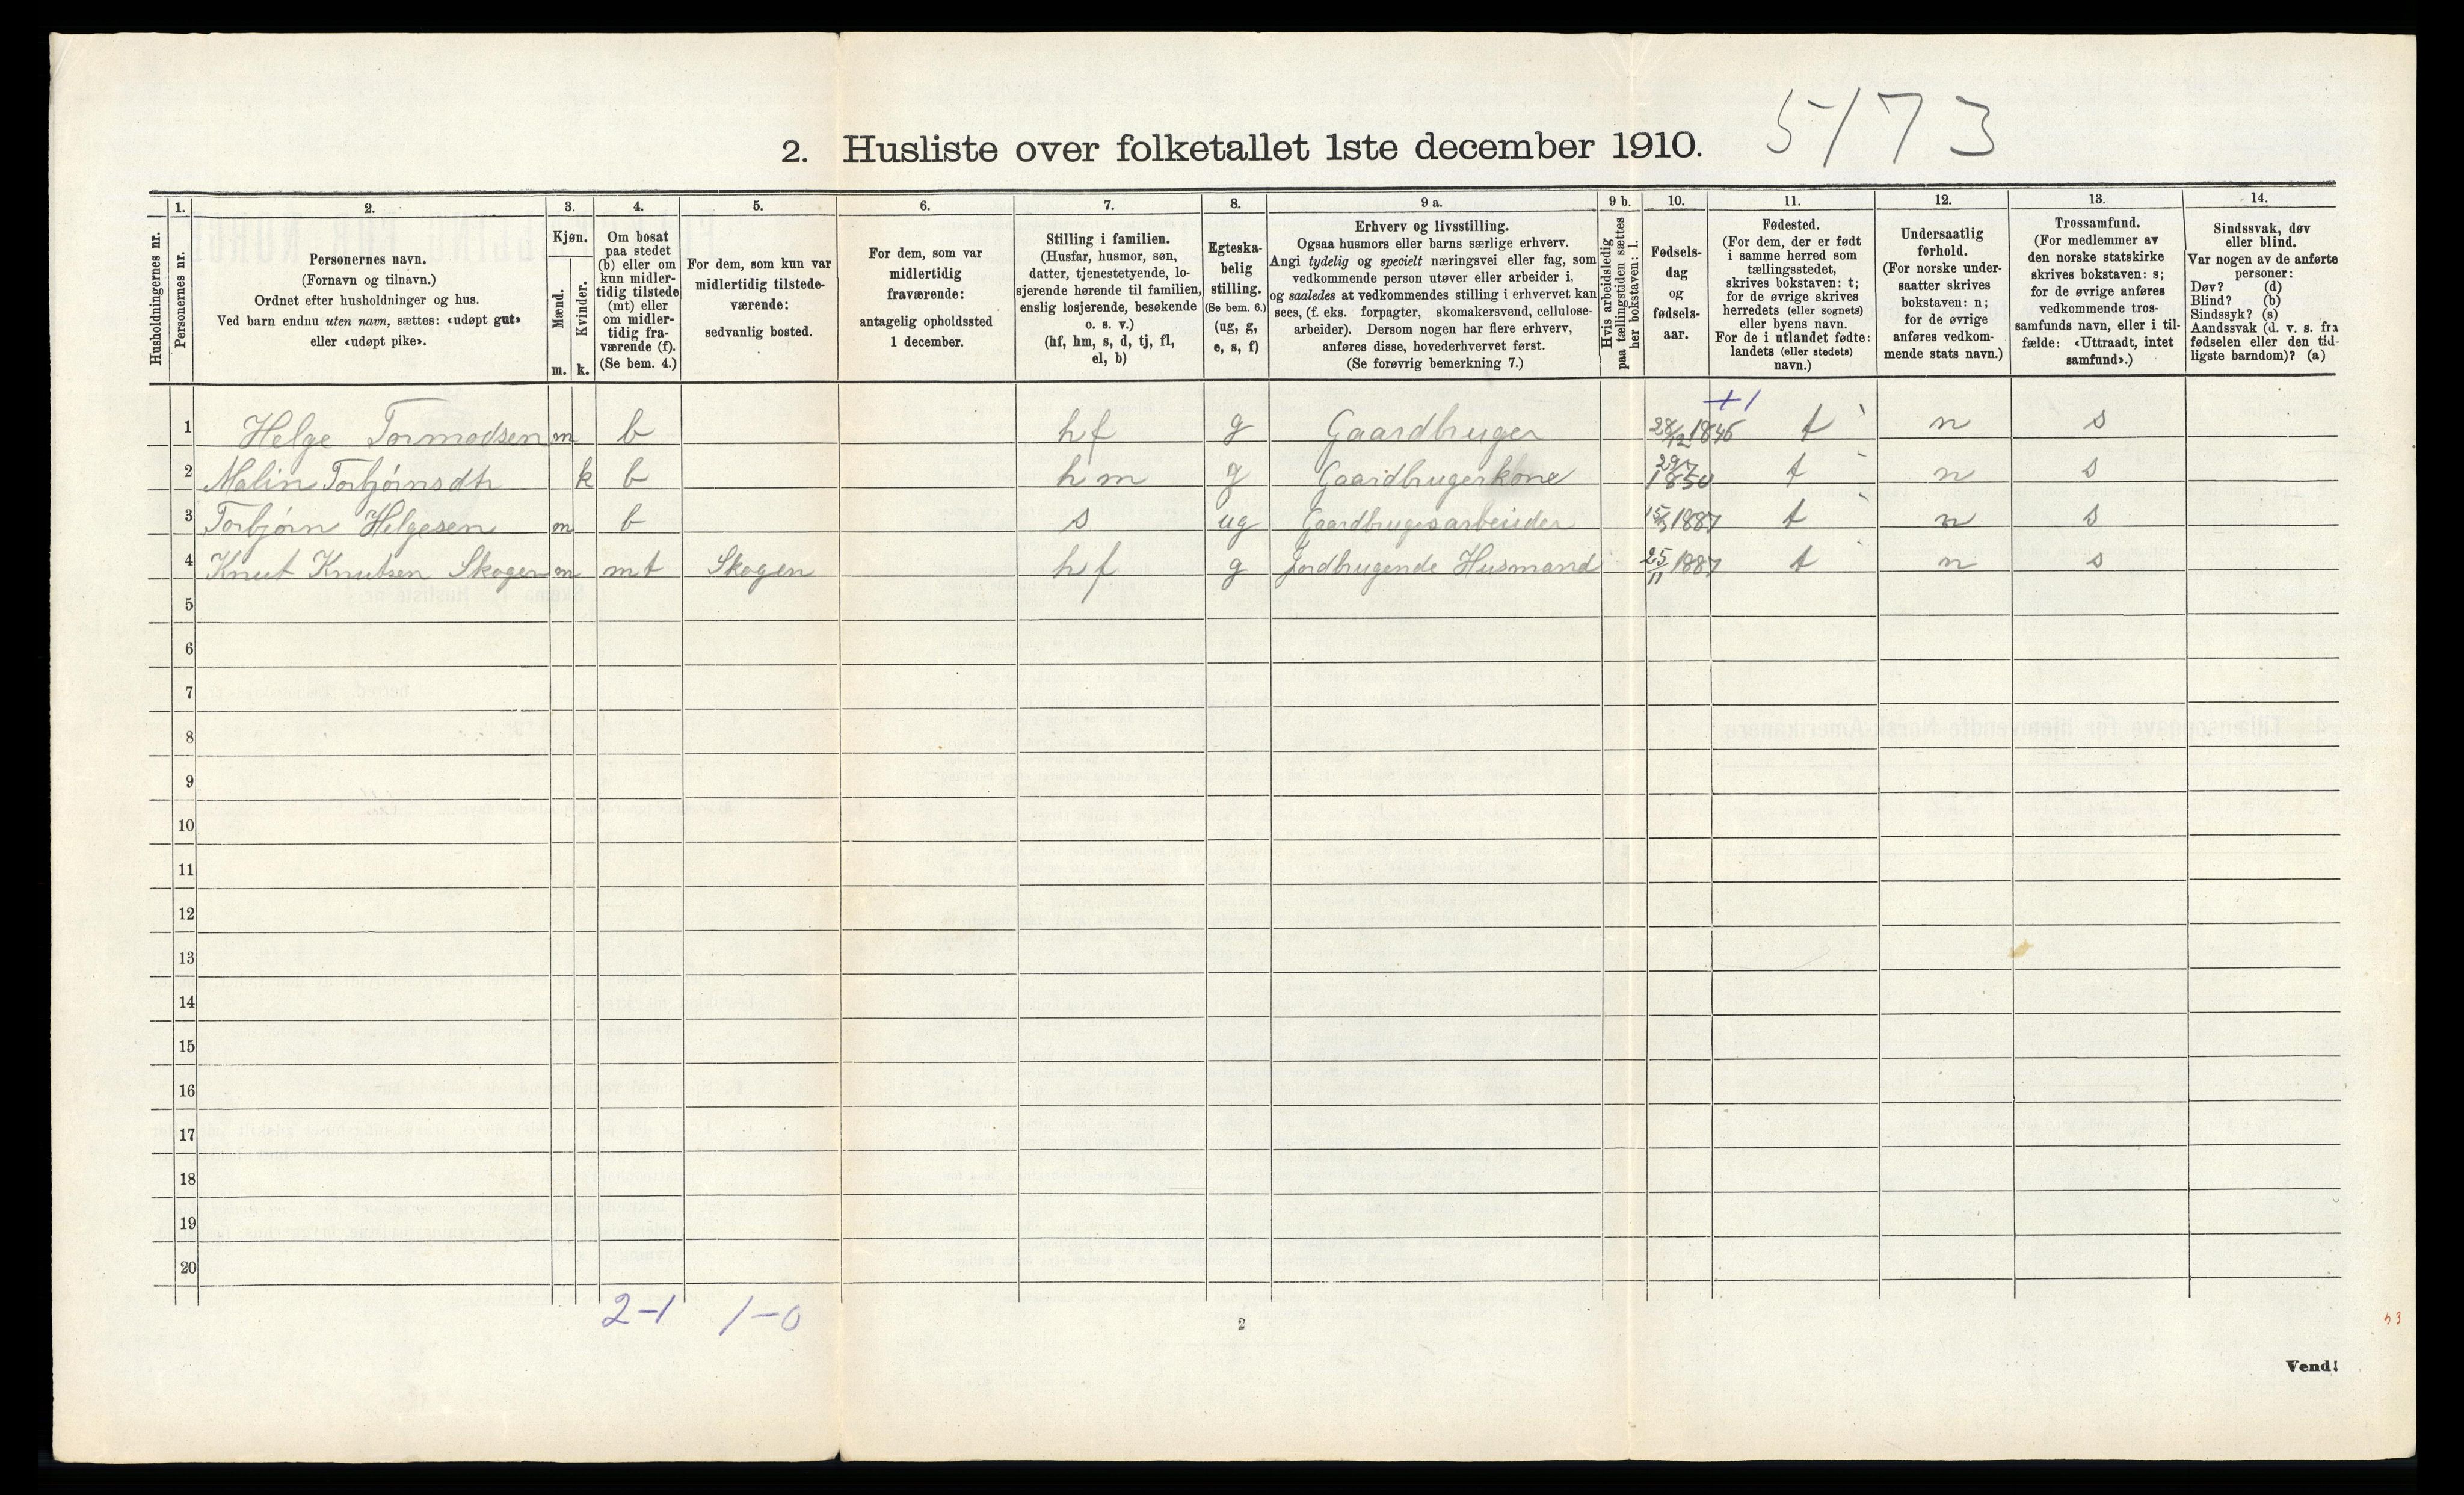 5/73
2. Husliste over folketallet 1ste december 1910.
Husholdningernes nr.
1.
Personernes nr.
2.
Personernes navn.
(Fornavn og tilnavn.)
Ordnet efter husholdninger og hus.
Ved barn endnu uten navn, sættes: «udøpt gut»
eller «udøpt pike».
3.
Kjøn.
Mænd.
Kvinder.
m. k.
4.
Om bosat
paa stedet
(b) eller om
kun midler-
tidig tilstede
(mt) eller
om midler-
tidig fra-
værende (f).
(Se bem. 4.)
5.
For dem, som kun var
midlertidig tilstede-
værende:
sedvanlig bosted.
6.
For dem, som var
midlertidig
fraværende:
antagelig opholdssted
1 december.
7.
Stilling i familien.
(Husfar, husmor, søn,
datter, tjenestetyende, lo-
sjerende hørende til familien,
enslig losjerende, besøkende
o. s. v.)
(hf, hm, s, d, tj, fl,
el, b)
8.
Egteska-
belig
stilling.
(Se bem. 6.)
(ug, g,
e, s, f)
9 a.
Erhverv og livsstilling.
Ogsaa husmors eller barns særlige erhverv.
Angi tydelig og specielt næringsvei eller fag, som
vedkommende person utøver eller arbeider i,
og saaledes at vedkommendes stilling i erhvervet kan
sees, (f. eks. forpagter, skomakersvend, cellulose-
arbeider). Dersom nogen har flere erhverv,
anføres disse, hovederhvervet først.
(Se forøvrig bemerkning 7.)
9 b.
Hvis arbeidsledig
paa tællingstiden sættes
her bokstaven: l.
10.
Fødsels-
dag
og
fødsels-
aar.
11.
Fødested.
(For dem, der er født
i samme herred som
tællingsstedet,
skrives bokstaven: t;
for de øvrige skrives
herredets (eller sognets)
eller byens navn.
For de i utlandet fødte:
landets (eller stedets)
navn.)
12.
Undersaatlig
forhold.
(For norske under-
saatter skrives
bokstaven: n;
for de øvrige
anføres vedkom-
mende stats navn.)
13.
Trossamfund.
(For medlemmer av
den norske statskirke
skrives bokstaven: s;
for de øvrige anføres
vedkommende tros-
samfunds navn, eller i til-
fælde: «Uttraadt, intet
samfund».)
14.
Sindssvak, døv
eller blind.
Var nogen av de anførte
personer:
Døv? (d)
Blind? (b)
Sindssyk? (s)
Aandssvak (d. v. s. fra
fødselen eller den tid-
ligste barndom)? (a)
+1
1 Helge Tormodsen m b hf g Gaardbruger 28/12 1846 t n s
2 Malin Torbjørnsdtr k b hm g Gaardbrugerkone 1850 t n s
3 Torbjørn Helgesen m b s ug Gaardbrugsarbeider 1887 t n s
4 Knut Knutsen Skogen m mt Skogen hf g Jordbrugende Husmand 25/11 1887 t n s
5
6
7
8
9
10
11
12
13
14
15
16
17
18
19
20
2-1 1-0
2
53
Vend!